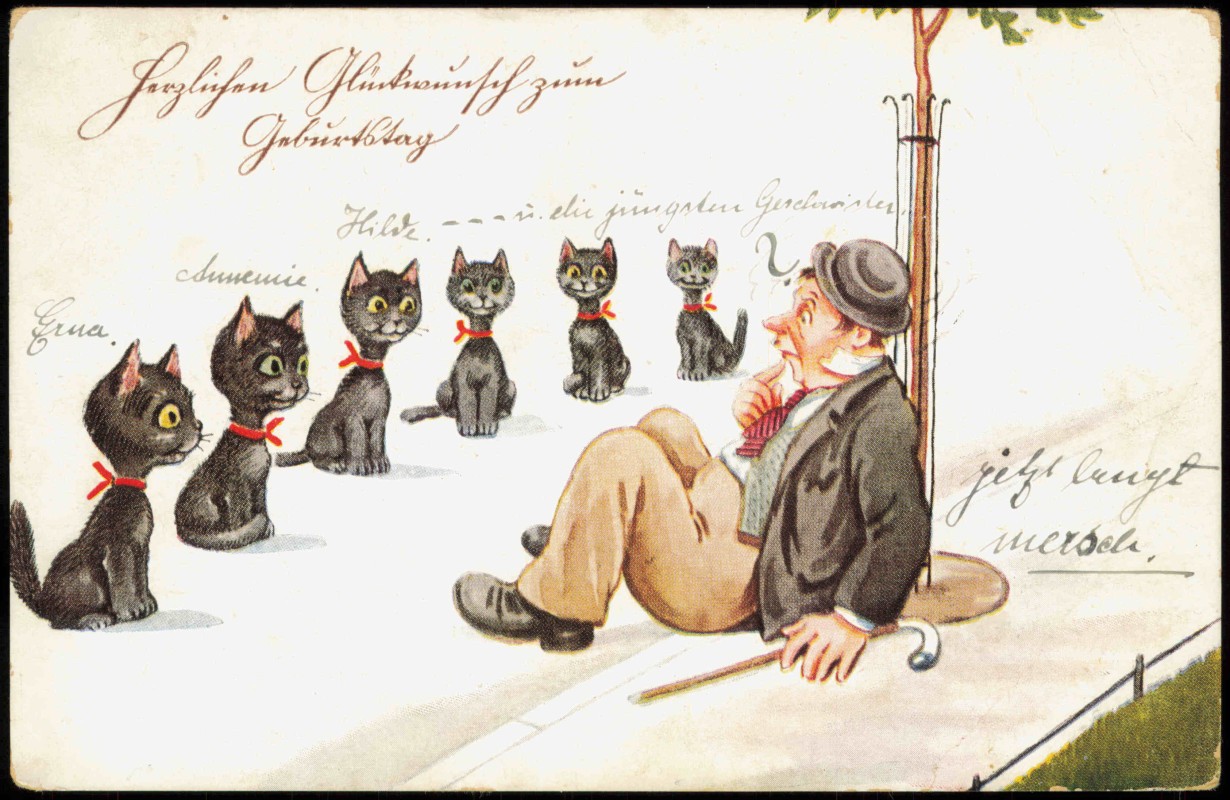 Herzlichen Glückwunsch zum
Geburtstag
Hilde. --- u. die jüngsten Geschwister.
Annemie.
Erna.
?
jetzt langt
mersch.